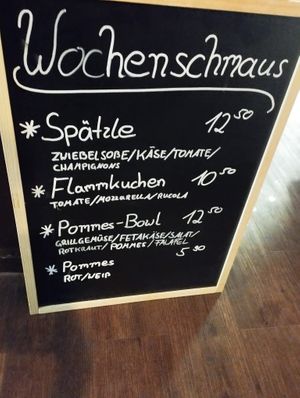 Wochenschmaus
* Spätzle 12,50
ZWIEBELSOßE/KÄSE/TOMATE/
CHAMPIGNONS
* Flammkuchen 10,50
TOMATE/MOZZARELLA/RUCOLA
* Pommes-Bowl 12,50
GRILLGEMÜSE/FETAKÄSE/SALAT/
ROTKRAUT/POMMES/FALAFEL
* Pommes 5,90
ROT/WEIß